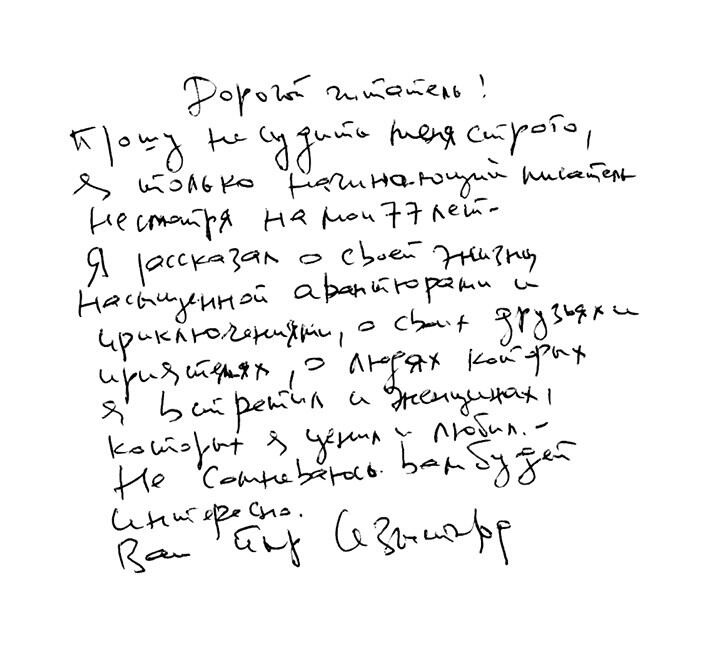 Дорогой читатель!
Прошу не судить меня строго,
я только начинающий писатель
несмотря на мои 77 лет-
Я рассказал о своей жизни
насыщенной авантюрами и
приключениями, о своих друзьях и
приятелях, о людях которых
я встретил и женщинах,
которых я ценил и любил.-
Не сомневаюсь вам будет
интересно.
Ваш